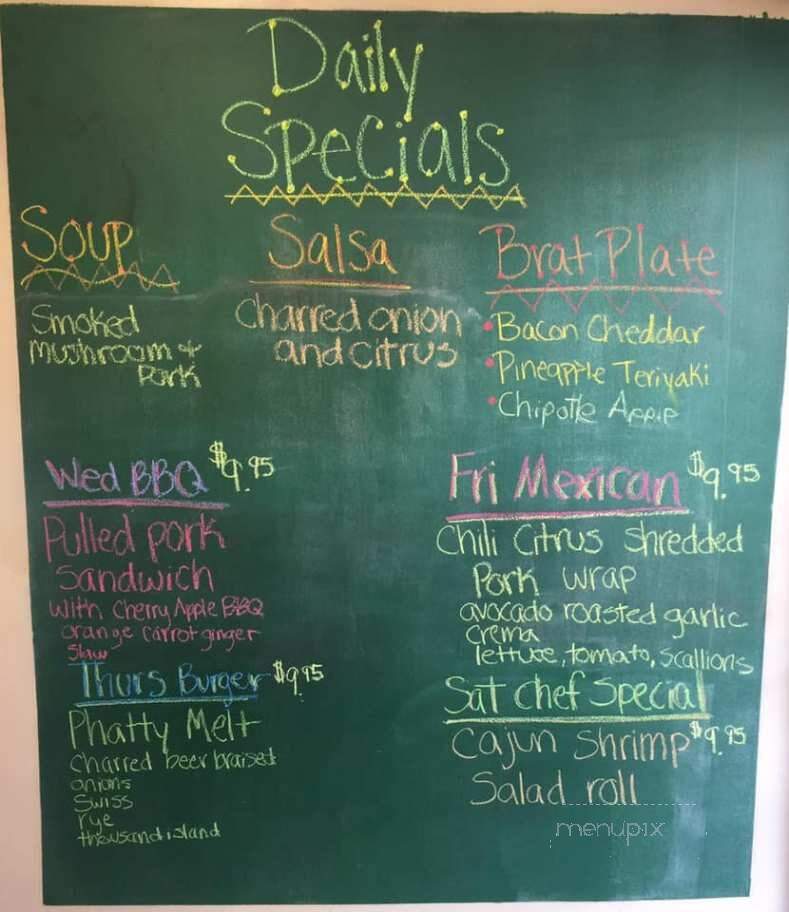 Daily
Specials
Soup
Smoked
mushroom &
Pork
Salsa
Charred onion
and citrus
Brat Plate
• Bacon Cheddar
• Pineapple Teriyaki
• Chipotle
Wed BBQ $9.95
Pulled pork
Sandwich
with Cherry Apple BBQ
orange carrot ginger
Slaw
Thurs Burger $9.95
Phatty Melt
Charred beer braised
onions
Swiss
rye
thousand island
Fri Mexican $9.95
Chili Citrus Shredded
Pork wrap
avocado roasted garlic
crema
lettuce, tomato, scallions
Sat Chef Special
Cajun Shrimp $9.95
Salad roll
menupix